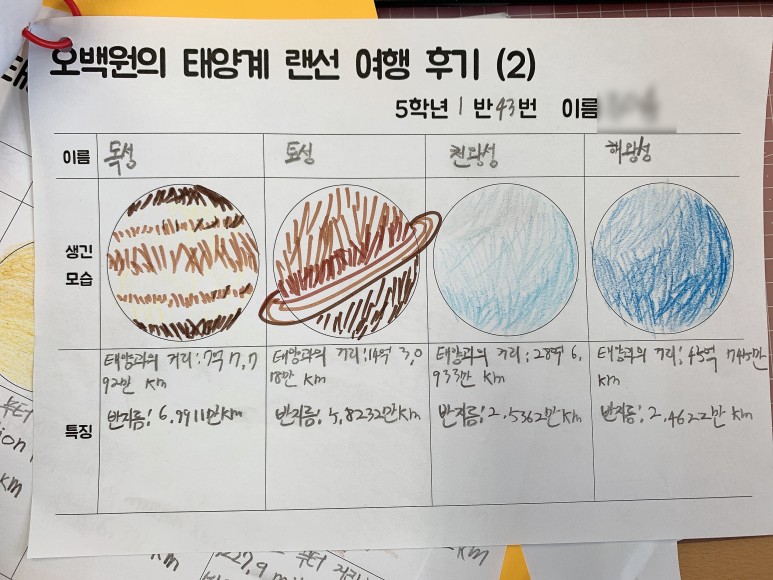 오백원의 태양계 랜선 여행 후기 (2)
5학년 1 반 43번 이름
이름 목성 토성 천왕성 해왕성
생긴
모습
특징
태양과의 거리:7억 7,7
92만 km
반지름: 6.9911만km
태양과의 거리:14억 3,0
18만 km
반지름: 5.8232만km
태양과의 거리:28억 6,
933만 km
반지름: 2.5362만 km
태양과의 거리: 45억 745만
km
반지름: 2.4622만 km
ion
km
km
부터
km